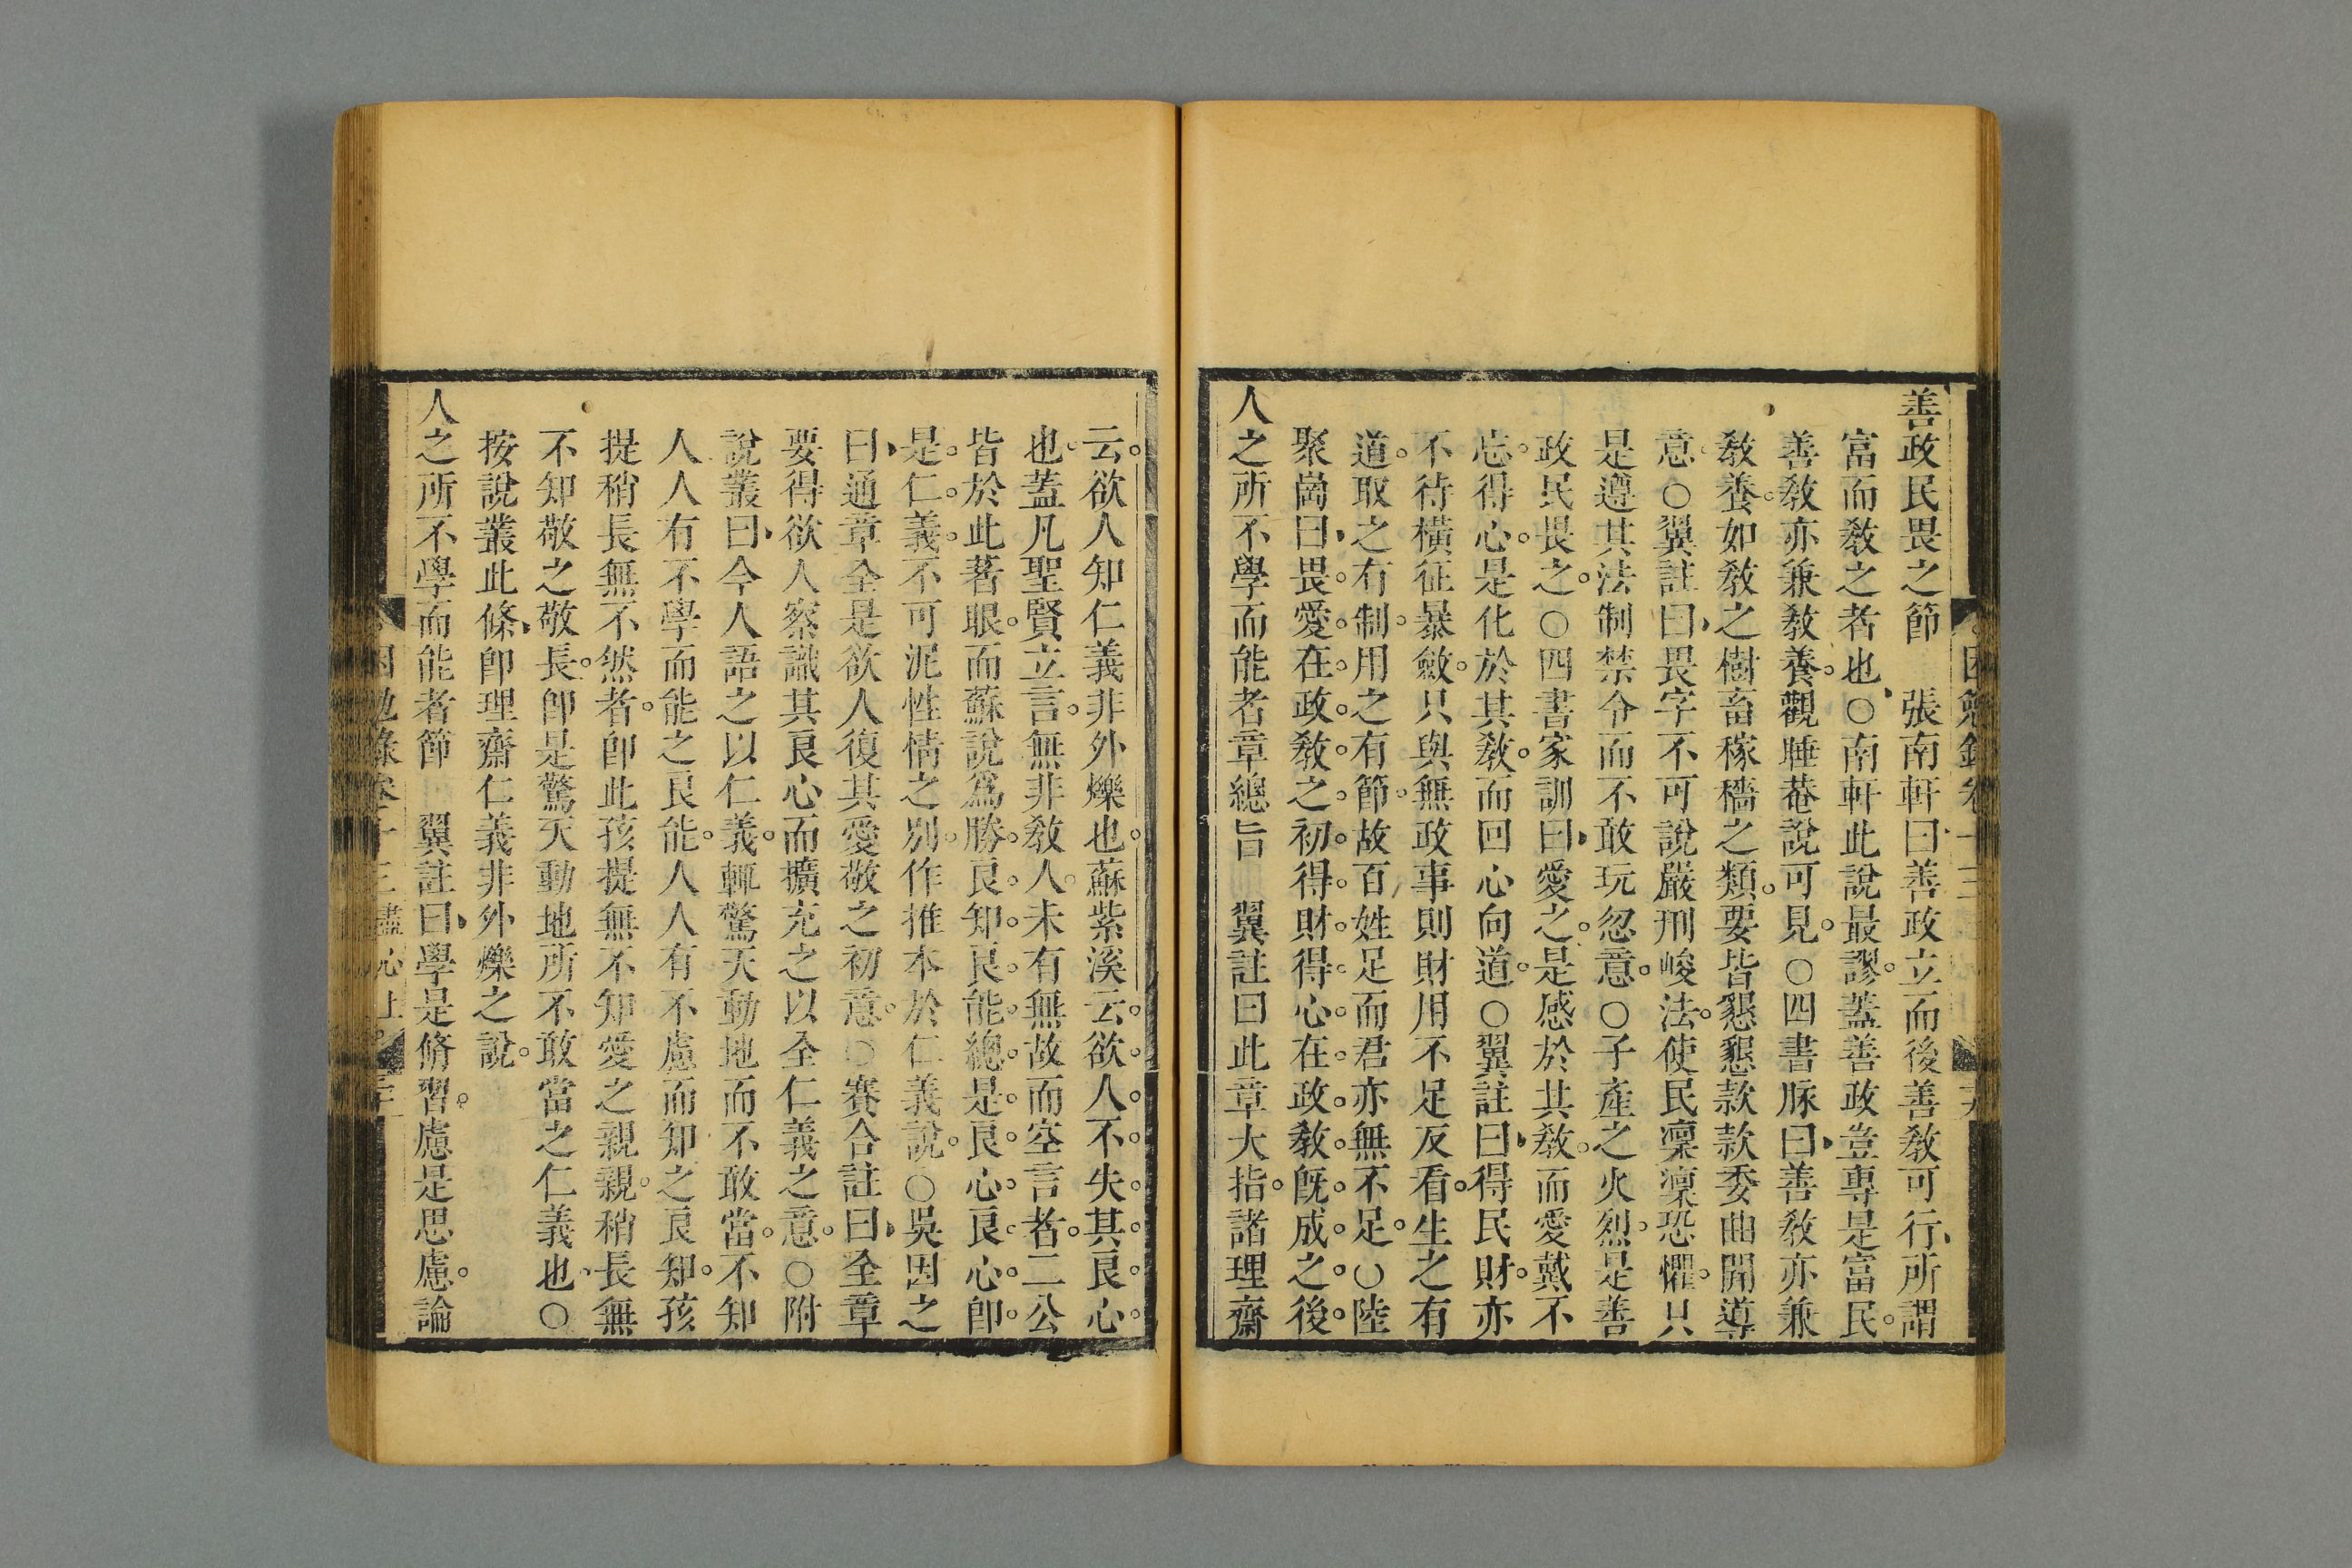 善政民畏之節　張南軒曰善政立而後善教可行所謂
富而教之者也○南軒此說最謬蓋善政豈專是富民
善教亦兼教養觀睡菴說可見○四書脉曰善教亦兼
教養如教之樹畜稼穡之類要皆懇懇款款委曲開導
意○翼註曰畏字不可說嚴刑峻法使民凜凜恐懼只
是遵其法制禁令而不敢玩忽意○子產之火烈是善
政民畏之○四書家訓曰愛之是感於其教而愛戴不
忘得心是化於其教而回心向道○翼註曰得民財亦
不待橫征暴斂只與無政事則財用不足反看生之有
道取之有制用之有節故百姓足而君亦無不足○陸
聚崗曰畏愛在政教之初得財得心在政教既成之後
人之所不學而能者章總旨　翼註曰此章大指諸理齋
云欲人知仁義非外爍也蘇紫溪云欲人不失其良心
也蓋凡聖賢立言無非教人未有無故而空言者二公
皆於此著眼而蘇說為勝良知良能總是良心良心卽
是仁義不可泥性情之別作推本於仁義說○吳因之
曰通章全是欲人復其愛敬之初意○賽合註曰全章
要得欲人察識其良心而擴充之以全仁義之意○附
說叢曰今人語之以仁義輒驚天動地而不敢當不知
人人有不學而能之良能人人有不慮而知之良知孩
提稍長無不然者卽此孩提無不知愛之親親稍長無
不知敬之敬長卽是驚天動地所不敢當之仁義也○
按說叢此條卽理齋仁義非外爍之說
人之所不學而能者節　翼註曰學是脩習慮是思慮論
困勉錄卷十三 盡心上